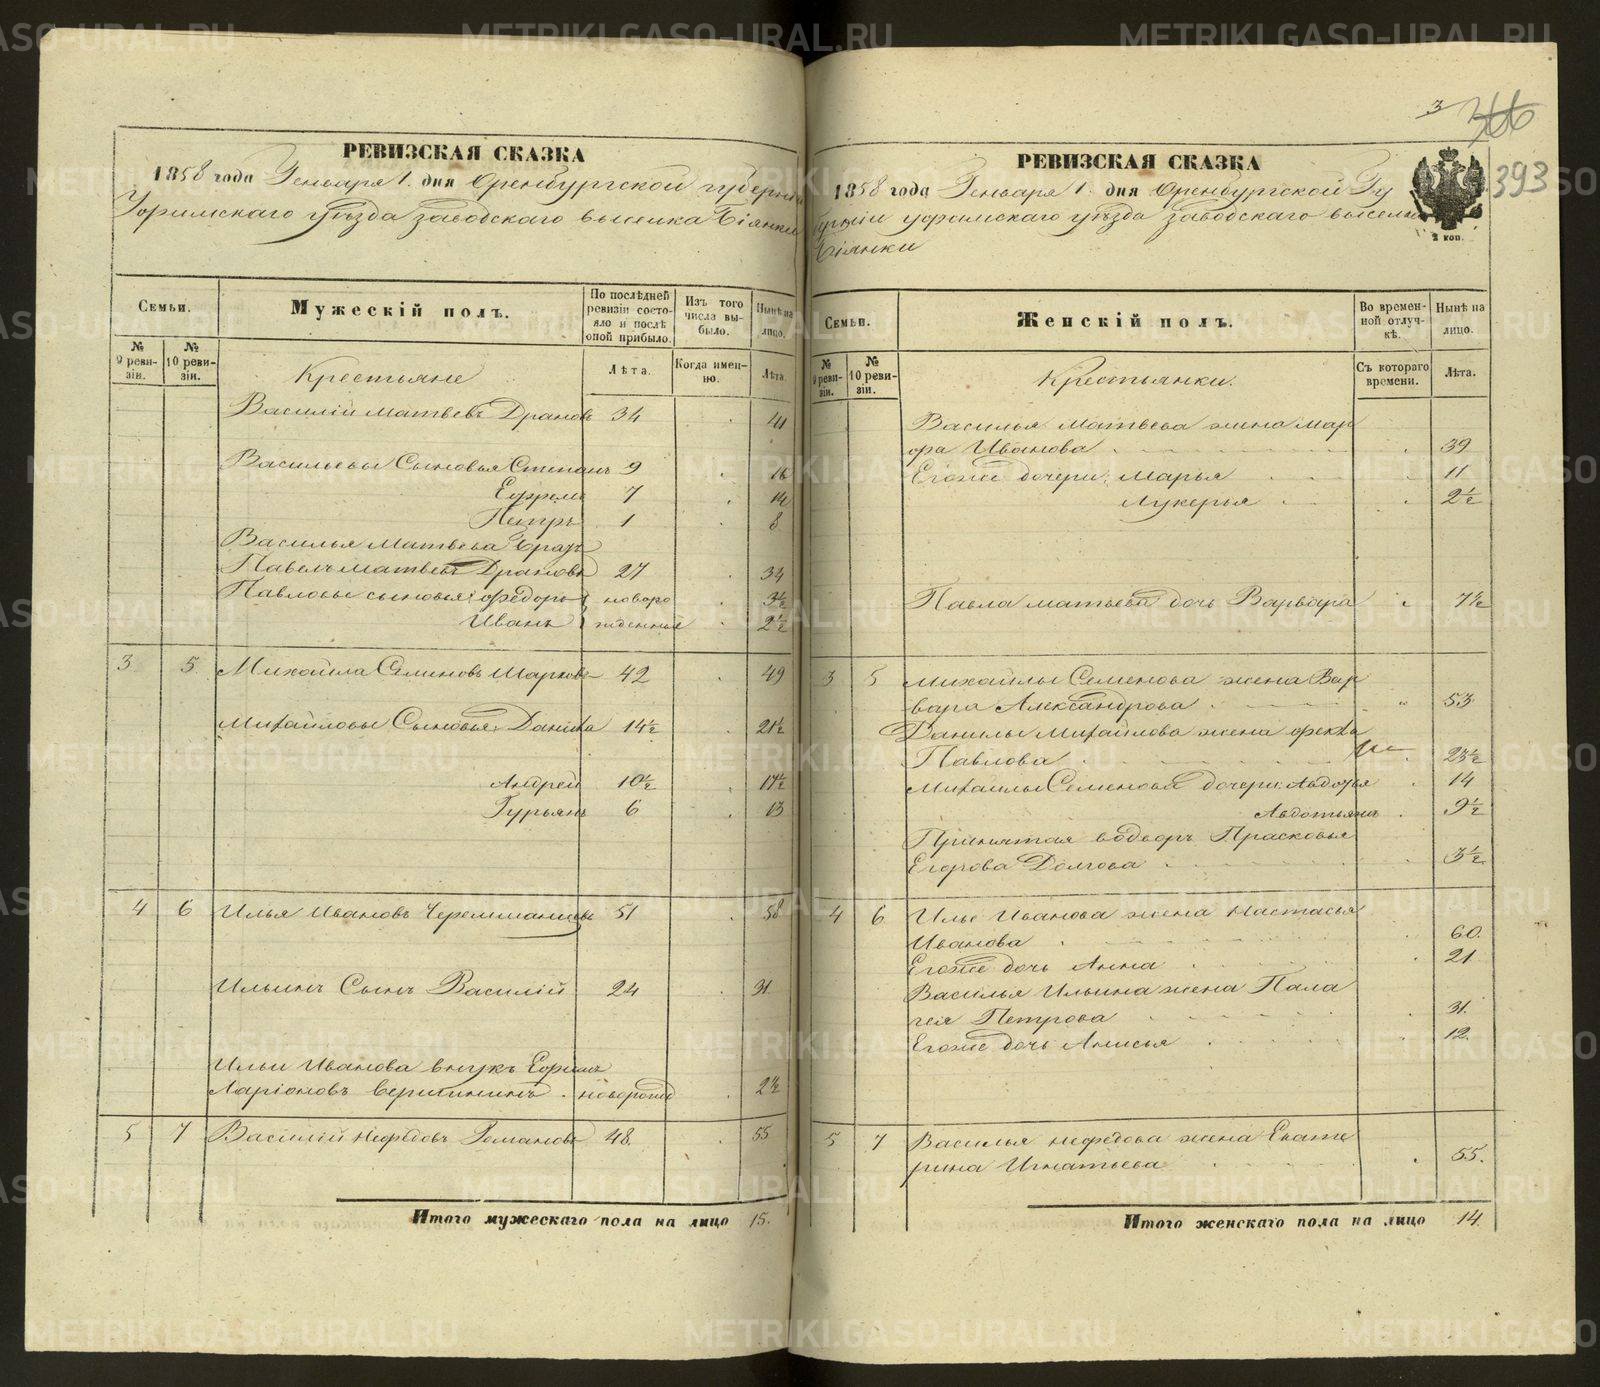 РЕВИЗСКАЯ СКАЗКА
1858 года Генваря 1. дня Оренбургской губерніи
Уфимскаго уѣзда заводскаго выселка Біянки
Семьи.
№ 9 ревизіи.
№ 10 ревизіи.
Мужескій полъ.
По послѣдней ревизіи состояло и послѣ оной прибыло.
Изъ того числа выбыло.
Нынѣ на лицо.
Лѣта.
Когда именно.
Лѣта.
Крестьяне
Василій Матвеевъ Драновъ 34 41
Васильевы Сыновья Степанъ 9 16
Ефремъ 7 14
Петръ 1 8
Василья Матвеева братъ
Павелъ Матвеевъ Драновъ 27 34
Павловы сыновья: Федоръ новоро 3½
Иванъ жденныя 2½
3 5 Михайла Семеновъ Шарковъ 42 49
Михайловы Сыновья: Данила 14½ 21½
Андрей 10½ 17½
Гурьянъ 6 13
4 6 Илья Ивановъ Черемшанцевъ 51 58
Ильинъ Сынъ Василій 24 31
Ильи Иванова внукъ Ефимъ
Ларіоновъ новорожд 2½
5 7 Василій Нефедовъ Романовъ 48 55
Итого мужескаго пола на лицо 15.
3
366
393
РЕВИЗСКАЯ СКАЗКА
1858 года Генваря 1. дня Оренбургской Гу
берніи Уфимскаго уѣзда заводскаго выселка
Біянки
2 коп.
Семьи.
№ 9 ревизіи.
№ 10 ревизіи.
Женскій полъ.
Во временной отлучкѣ.
Нынѣ на лицо.
Съ котораго времени.
Лѣта.
Крестьянки.
Василья Матвеева жена Мар
фа Иванова 39
Егоже дочери: Марья 11
Лукерья 2½
Павла Матвеева дочь Варвара 7½
3 5 Михайлы Семенова жена Вар
вара Александрова 53
Данилы Михайлова жена Фекла
Павлова 23½
Михайлы Семенова дочери: Авдотья 14
Авдотьяна 9½
Принятая во дворъ Прасковья
Егорова Долгова 3½
4 6 Ильи Иванова жена Настасья
Иванова 60.
Егоже дочь Анна 21
Василья Ильина жена Пала
гея Петрова 31.
Егоже дочь Анисья 12.
5 7 Василья Нефедова жена Екате
рина Игнатьева 55.
Итого женскаго пола на лицо 14
METRIKI.GASO-URAL.RU